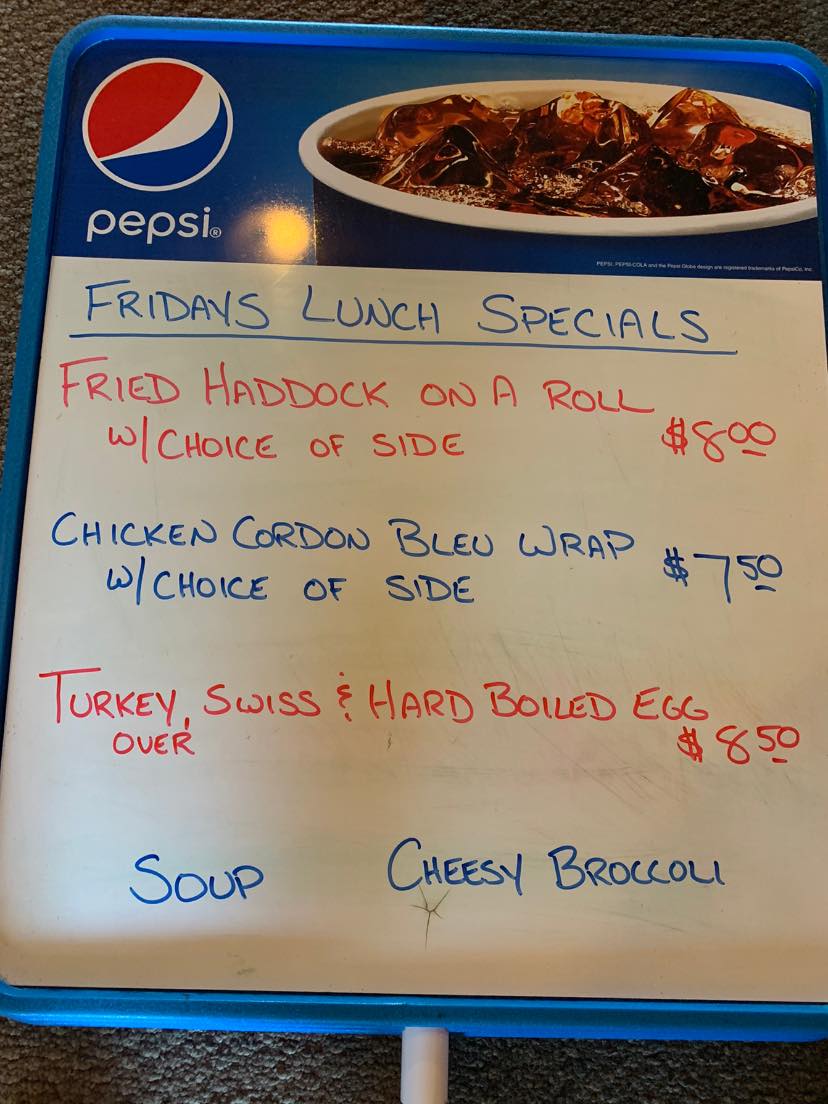 pepsi®
PEPSI, PEPSI-COLA and the Pepsi Globe design are registered trademarks of PepsiCo, Inc.
FRIDAYS LUNCH SPECIALS
FRIED HADDOCK ON A ROLL
W/CHOICE OF SIDE $8.00
CHICKEN CORDON BLEU WRAP
W/CHOICE OF SIDE $7.50
TURKEY, SWISS & HARD BOILED EGG
OVER $8.50
SOUP CHEESY BROCCOLI